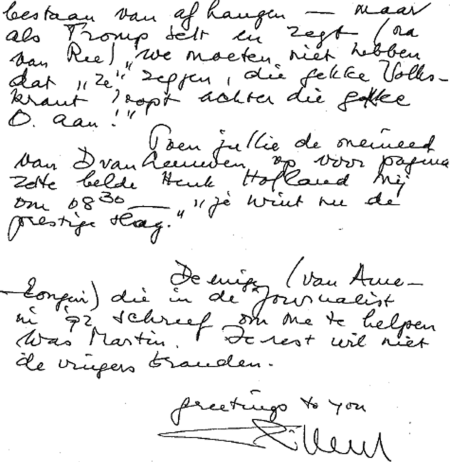 bestaan van af hangen — maar
als Tromp belt en zegt (na
van Ree) "we moeten niet hebben
dat "ze" zeggen, die gekke Volks-
krant loopt achter die gekke
O. aan!"
Toen jullie de meineed
van D van Leeuwen op voor pagina
zette belde Henk Hofland mij
om 08 30 — "je wint nu de
prestige slag."
De enige (van Ame-
rongen) die in de Journalist
in '92 schreef om me te helpen
was Martin. De rest wil niet
de vingers branden.
greetings to you